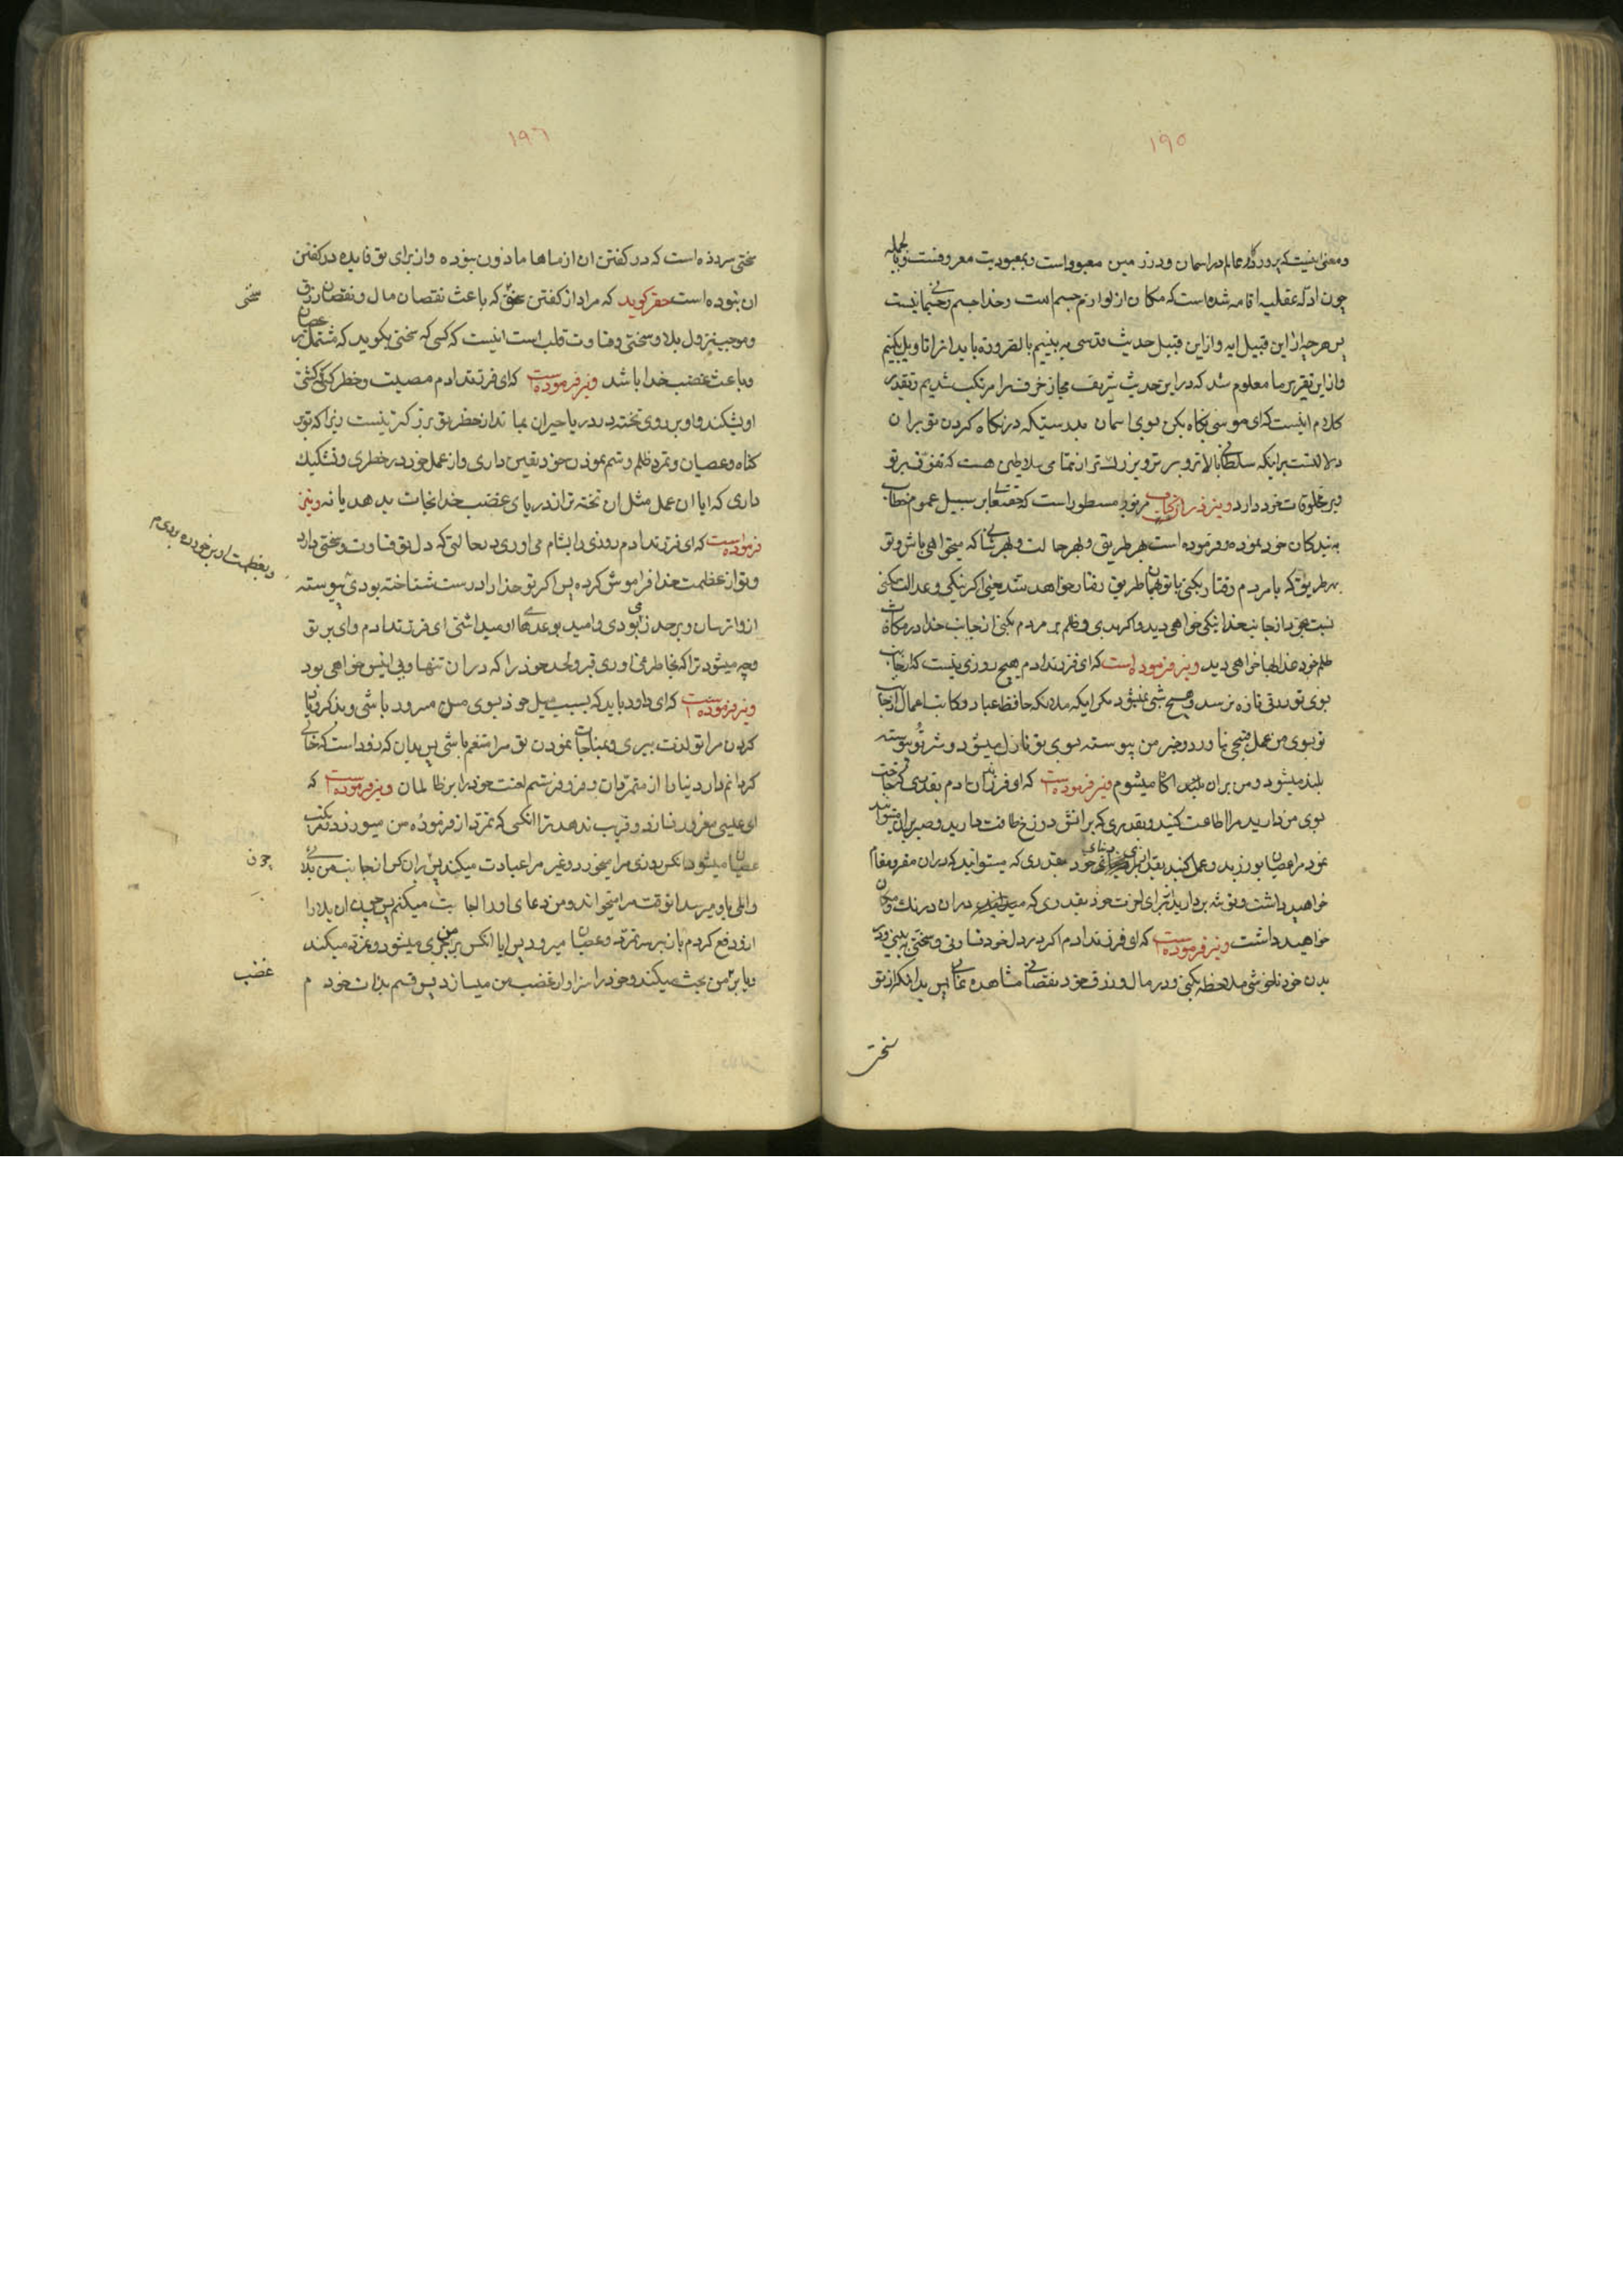 ١٩٥
ومعنی اینست که پروردگار عالم در اسمان ودر زمین معبود است و بمعبودیت معروفست وبالجمله
چون ادله عقلیه اقامه شده است که مکان از لوازم جسم است وخدا جسم وجسمانی نیست
پس هرچه از این قبیل ایه واز این قبیل حدیث قدسی به بینیم بالضروره باید انرا تاویل بکنیم
واز این تقریر ما معلوم شد که در این حدیث شریف مجاز حرف را مرتکب شدیم وتقدیر
کلام اینست که ای موسی نکاه بکن بسوی اسمان بدرستیکه در نکاه کردن تو بر ان
دلالتست بر اینکه سلطانی بالاتر وبرتر وبزرکتر از تمامی سلاطین هست که تفوق بر تو
وبر مخلوقات خود دارد ونیز در انجناب مزبور مسطور است که حقتعالی بر سبیل عموم خطاب
به بندکان خود نموده وفرموده است بهر طریق وبهر حالت وبهر شانی که میخواهی باش وتو
بهر طریق که با مردم رفتار بکنی با تو بهمان طریق رفتار خواهد شد یعنی اکر نیکی وعدالت بکنی
از جانب خدا نیکی خواهی دید واکر بدی وظلم بر مردم بکنی از جانب خدا در مکافات
ظلم خود عذابها خواهی دید ونیز فرموده است که ای فرزند ادم هیچ روزی نیست که از جانب
تو بسوی من عمل قبیحی نیاورد وخیر من پیوسته بسوی تو نازل میشود وشر تو پیوسته
بلند میشود ومن بران اکاه میشوم ونیز فرموده است که ای فرزندان ادم بقدری که حاجت
بسوی من دارید مرا اطاعت کنید وبقدری که بر اتش دوزخ طاقت دارید وصبر بران میتوانید
نمود مرا عصیان بورزید وعمل کنید بقدری که میتوانید که دران مقر ومقام
خواهید داشت وتوشه بردارید از برای اخرت خود بقدری که دران درنک ومکان
خواهید داشت ونیز فرموده است که ای فرزند ادم اکر در دل خود قساوتی وسختی به بینی ودر
بدن خود ناخوشی ملاحظه بکنی ودر مال ورزق خود نقصانی مشاهده نمائی پس بدانکه از تو
سخنی
١٩٦
سخنی سرزده است که در کفتن ان از ماها ماذون نبوده واز برای تو فایده در کفتن
ان نبوده است حقیر کوید که مراد از کفتن که باعث نقصان مال ونقصان رزق
سخنی
وموجب نزول بلا وسختی وقساوت قلب است اینست که کسی که سخنی بکوید که مشتمل بر عصیان
وباعث غضب خدا باشد ونیز فرموده است که ای فرزند ادم مصیبت وخطر کسی که کشتی
او بشکند واو بر روی تخته در دریا حیران بماند از خطر تو بزرکتر نیست زیرا که تو بر
کناه وعصیان وتمرد وظلم وستم نمودن خود یقین داری واز عمل خود در خطری وتشکیک
داری که ایا ان عمل مثل ان تخته ترا از دریای غضب خدا نجات بدهد یا نه ونیز
فرموده است که ای فرزند ادم روزی را بشام می اوری در حالتی که دل تو قساوت وسختی دارد
وتو از عظمت خدا فراموش کرده پس اکر تو خدا را درست شناخته بودی پیوسته
از او ترسان وبرحذر می بودی وامید بوعدهای او میداشتی ای فرزند ادم وای بر تو
وچه میشود ترا که بخاطر نمی اوری قبر ولحد خود را که در ان تنها وبی انیس خواهی بود
ونیز فرموده است که ای داود باید که بسبب میل خود بسوی من مسرور باشی وبذکر ویاد
کردن مرا تو لذت ببری وبمناجات نمودن تو مرا متنعم باشی پس بدان که زود است که خالی
کردانم دار دنیا را از متمردان وزود فرستم لعنت خود را بر ظالمان ونیز فرموده است که
ای عیسی مغرور نسازد وفریب ندهد ترا انکسی که تمرد از فرموده من میورزد ومرتکب
عصیان میشود انکس روزی مرا میخورد وغیر مرا عبادت میکند پس بران کس از جانب من بلائی
چون
والمی باو میرسد انوقت مرا میخواند ومن دعای او را اجابت میکنم پس ان بلا را
از او دفع کردم باز بر سر تمرد وعصیان میرود پس ایا انکس بر من جری میشود وتمرد میکند
ویا بر من بحث میکند وخود را سزاوار غضب من میسازد پس قسم بذات خودم
غضب